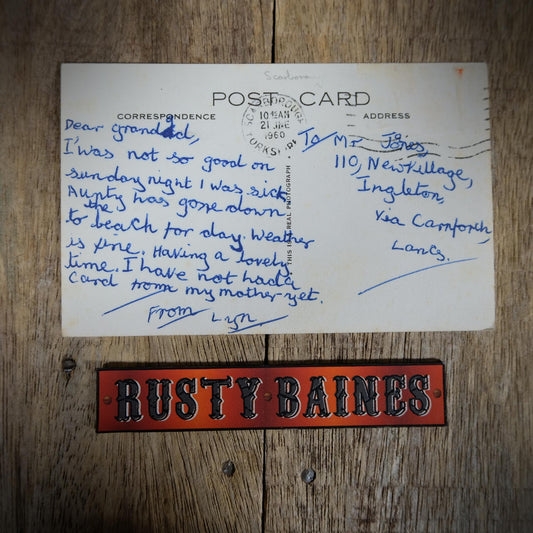 Scarboro
POST CARD
CORRESPONDENCE
ADDRESS
SCARBOROUGH
10 15 AM
21 JNE
1960
YORKSHIRE
THIS IS A REAL PHOTOGRAPH
Dear grandad,
I was not so good on
sunday night I was sick
Aunty has gone down
to the beach for day. Weather
is fine. Having a lovely
time. I have not had a
card from my mother yet.
From Lyn.
To Mr Jones,
110, New Village,
Ingleton,
Via Carnforth,
Lancs.
RUSTY BAINES